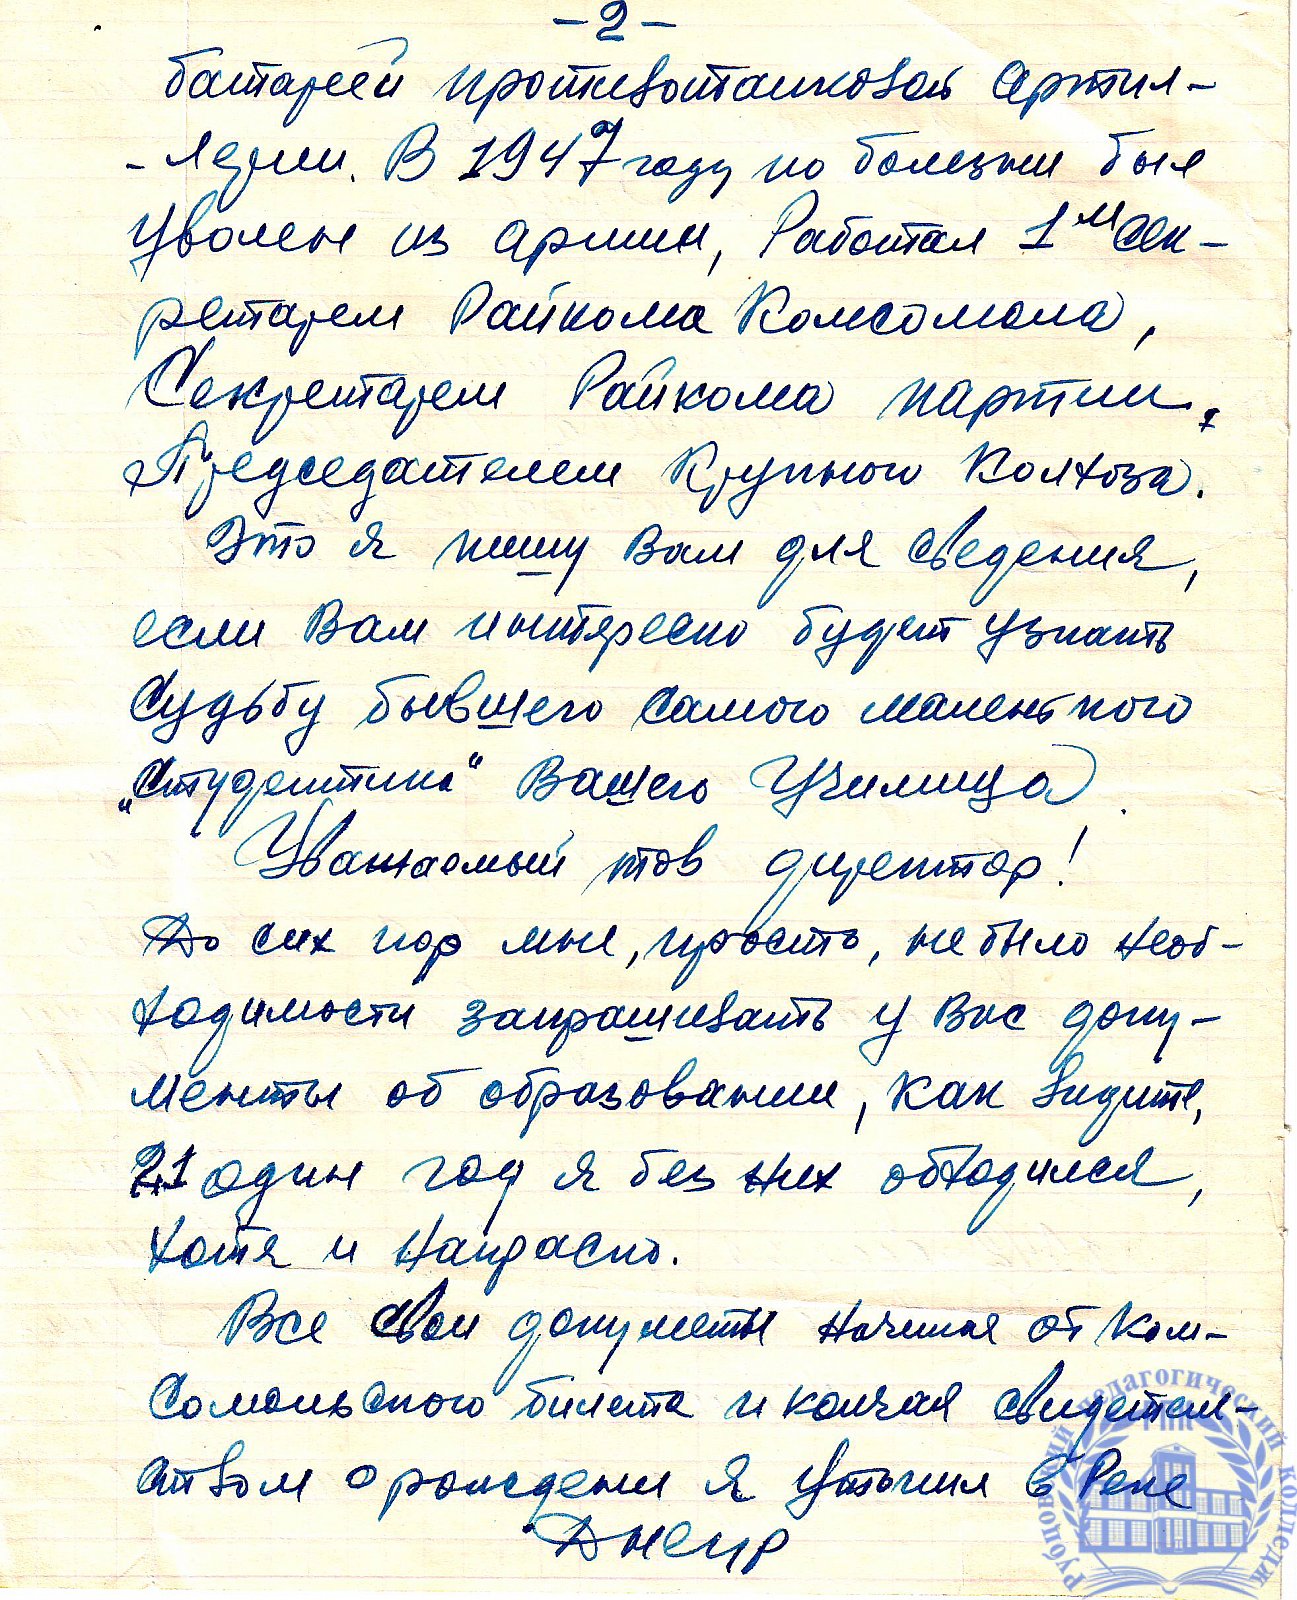 -2-
батареей противотанковой Артил-
- лерии. В 1947 году по болезни был
уволен из армии, Работал 1м Сек-
ретарем Райкома Комсомола,
Секретарем Райкома партии,
Председателем Крупного Колхоза.
Это я пишу Вам для сведения,
если Вам интересно будет узнать
Судьбу бывшего самого маленького
„Студентика" Вашего Училища
Уважаемый тов директор!
До сих пор мне, просто, не было необ-
ходимости запрашивать у Вас доку-
менты об образовании, как видите,
21 один год я без них обходился,
хотя и напрасно.
Все свои документы начиная от Ком-
сомольского билета и кончая свидетель-
ством о рождени я утопил в Реке
Днепр
Рубцовский педагогический колледж
РПК